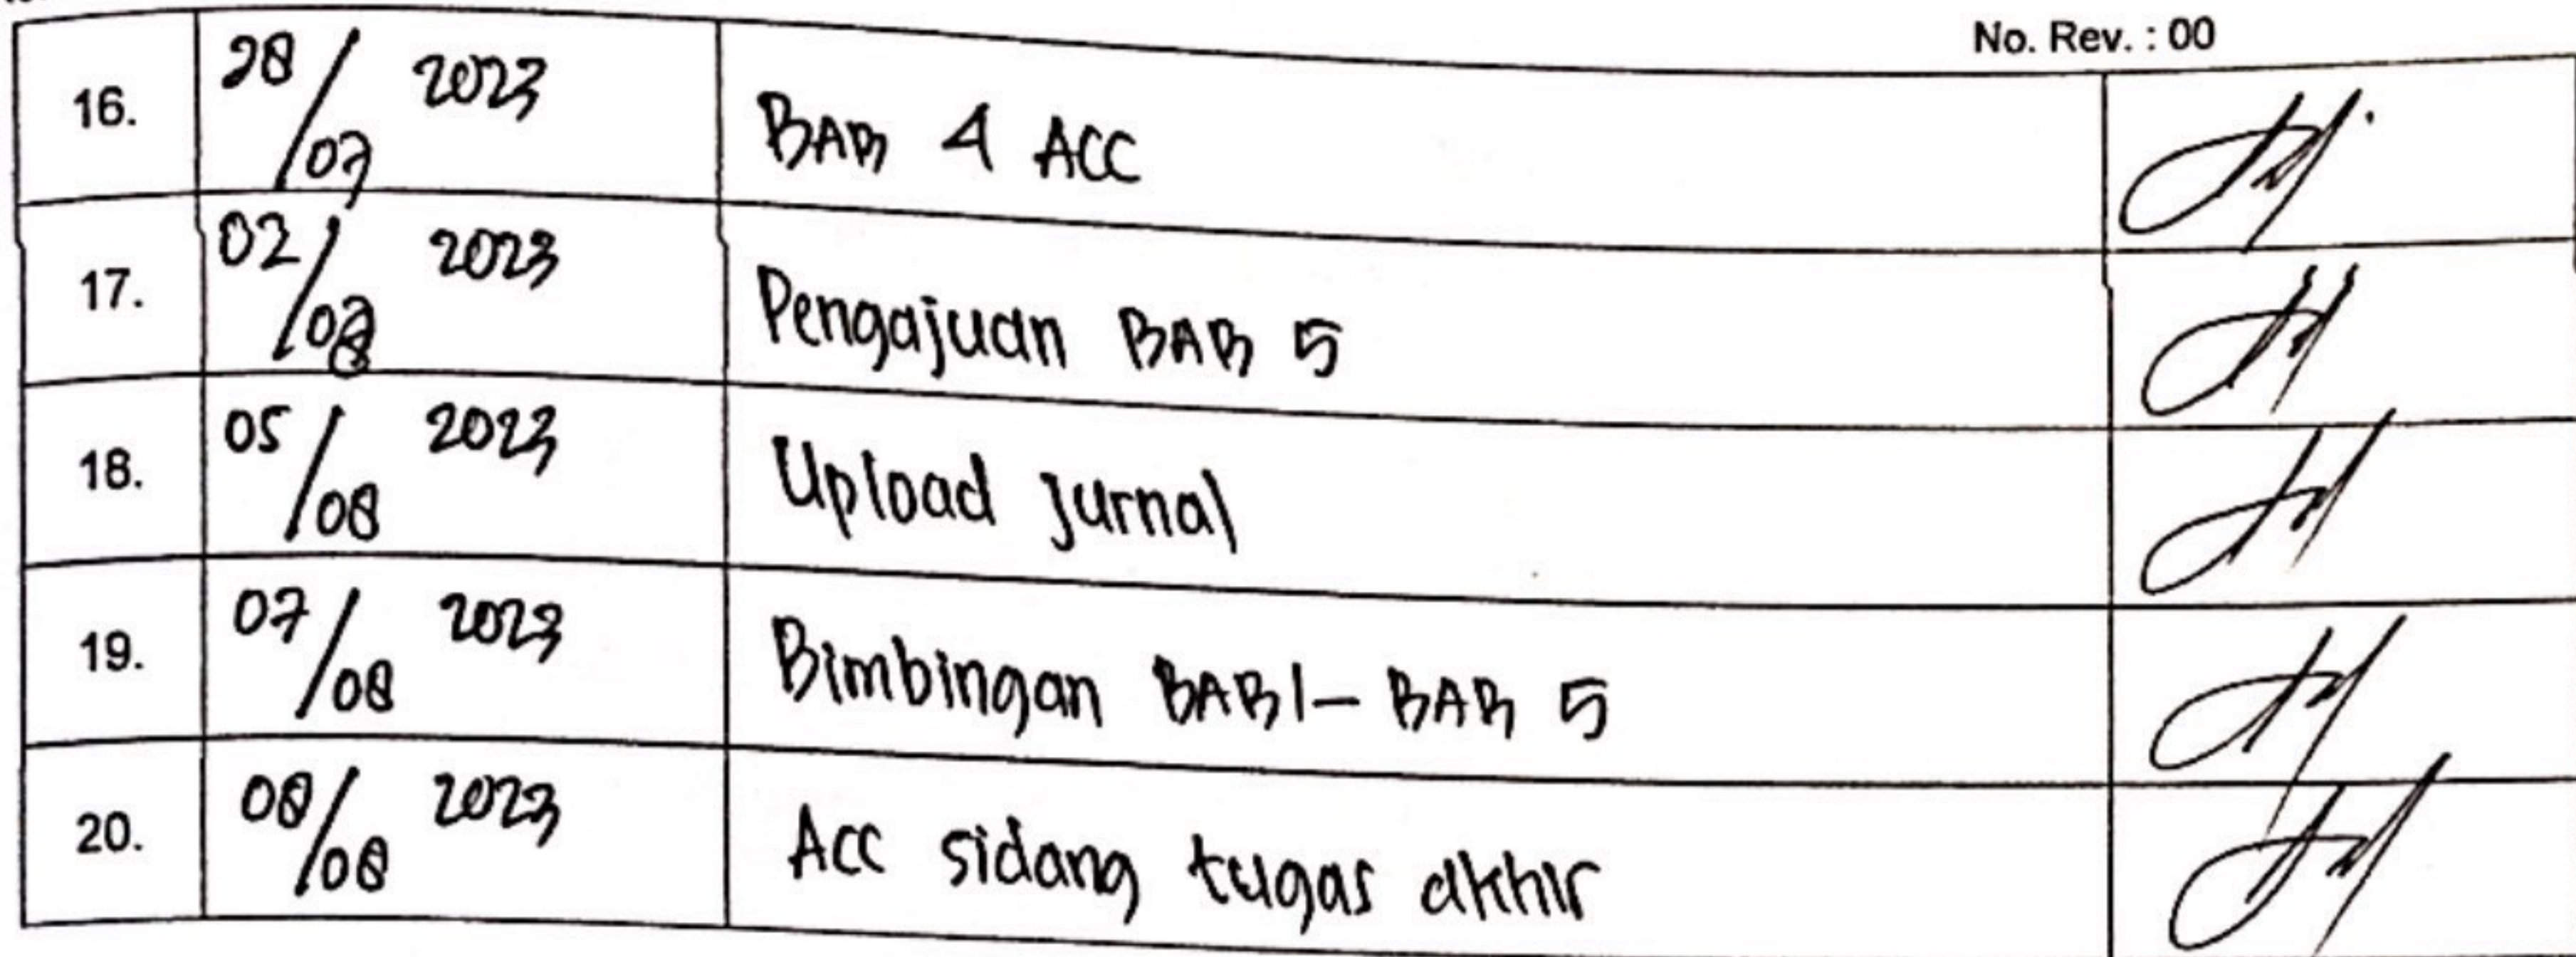 No. Rev. : 00
16. 28/07 2023 BAB 4 ACC
17. 02/08 2023 Pengajuan BAB 5
18. 05/08 2023 Upload jurnal
19. 07/08 2023 Bimbingan BAB 1 – BAB 5
20. 08/08 2023 Acc sidang tugas akhir